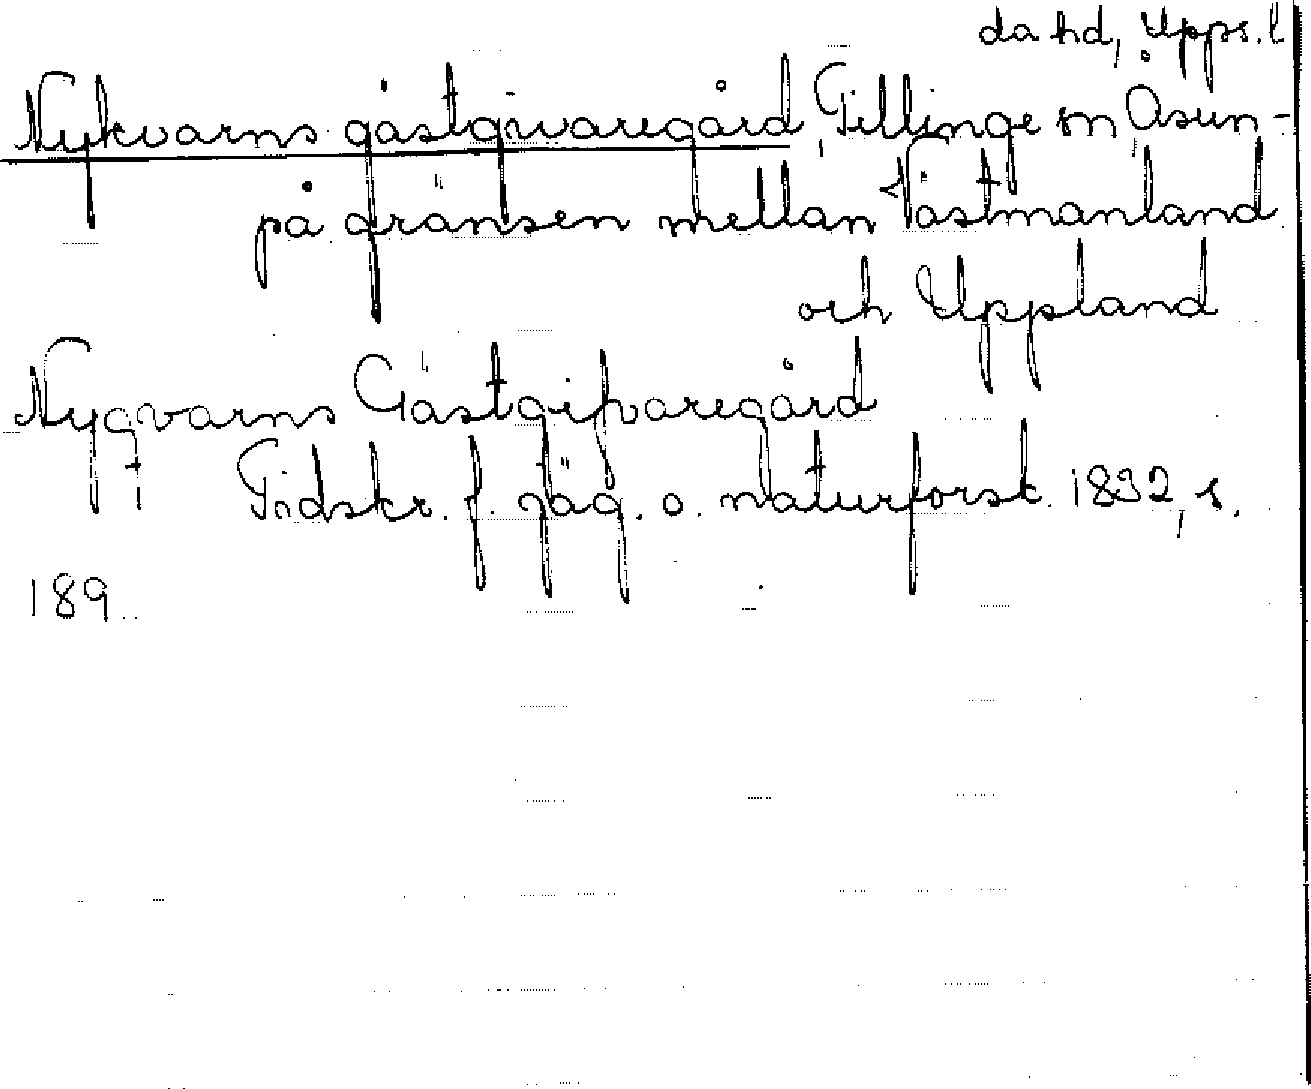 da hd, Upps. l
Nykvarns gästgivaregård, Tillinge sn, Åsun-
på gränsen mellan Västmanland
och Uppland
Nygvarns Gästgifvaregård
Tidskr. f. jäg. o. naturforsk. 1832, s.
189.